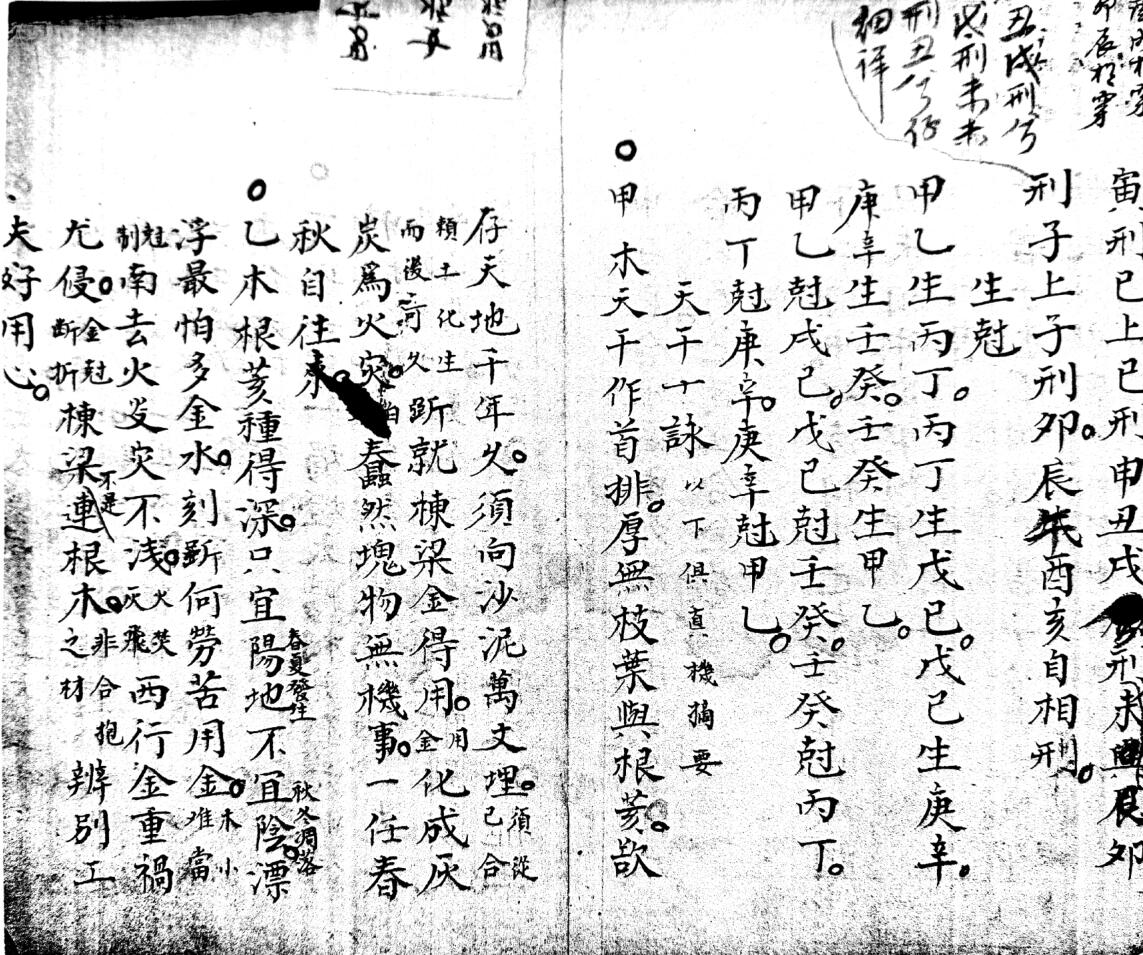 卯辰相穿
丑戌刑兮
戌刑未未
刑丑兮仔
細詳
寅刑巳上巳刑申丑戌刑未卯
刑子上子刑卯。辰酉亥自相刑。
生尅
甲乙生丙丁。丙丁生戊己。戊己生庚辛。
庚辛生壬癸。壬癸生甲乙。
甲乙尅戊己。戊己尅壬癸。壬癸尅丙丁。
丙丁尅庚辛。庚辛尅甲乙。
天干十詠以下俱真機摘要
甲木天干作首排。厚無枝葉與根荄。欲
存天地千年久。須向沙泥萬丈埋。須從己合
頼土化生而後可久斲就棟梁金得用。用金化成灰
炭爲火災。蠢然塊物無機事。一任春
秋自往來。
乙木根荄種得深。只宜陽地不宜陰。漂
春夏發生
秋冬凋落
浮最怕多金水。刻斲何勞苦用金。木小難當
尅制南去火炎災不淺。火焚灰飛西行金重禍
尤侵。金尅斷折棟梁連根木。非合抱之材辨別工
不是
夫好用心。